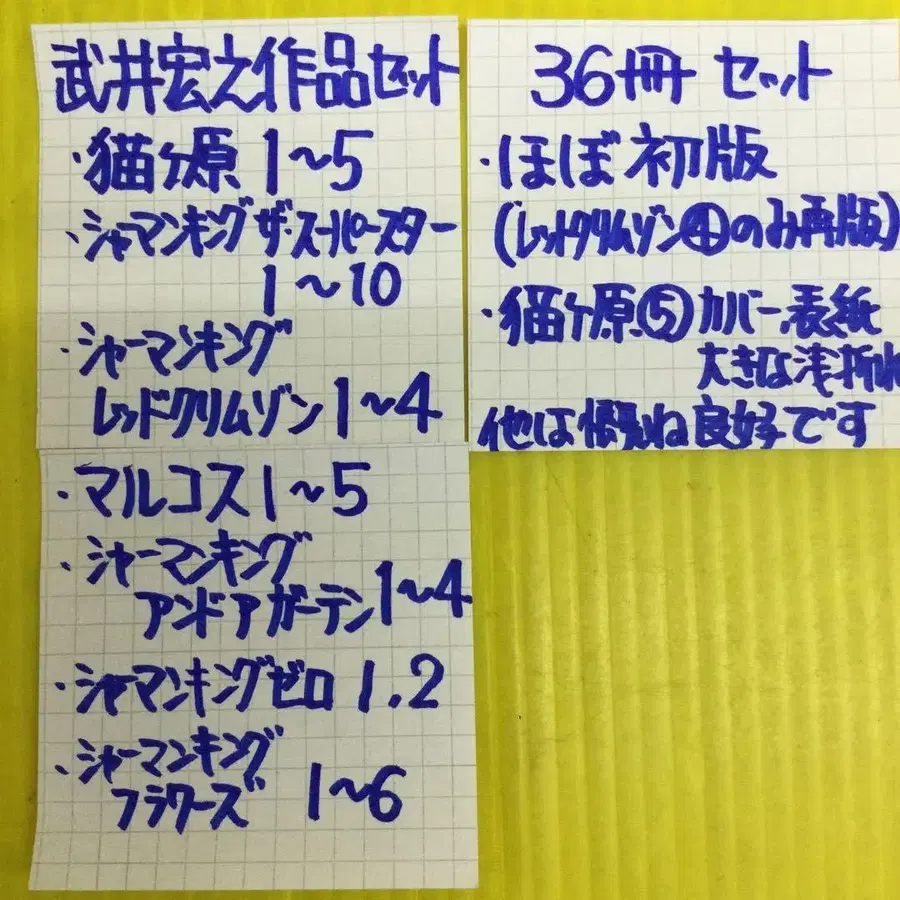 武井宏之作品セット
・猫ヶ原 1〜5
・シャーマンキング ザ・スーパースター
1〜10
・シャーマンキング
レッドクリムゾン 1〜4
・マルコス 1〜5
・シャーマンキング
アンドアガーデン 1〜4
・シャーマンキングゼロ 1.2
・シャーマンキング
フラワーズ 1〜6
36冊 セット
・ほぼ初版
(レッドクリムゾン④のみ再版)
・猫ヶ原⑤カバー、表紙
大きな浅折れ
他は概ね良好です